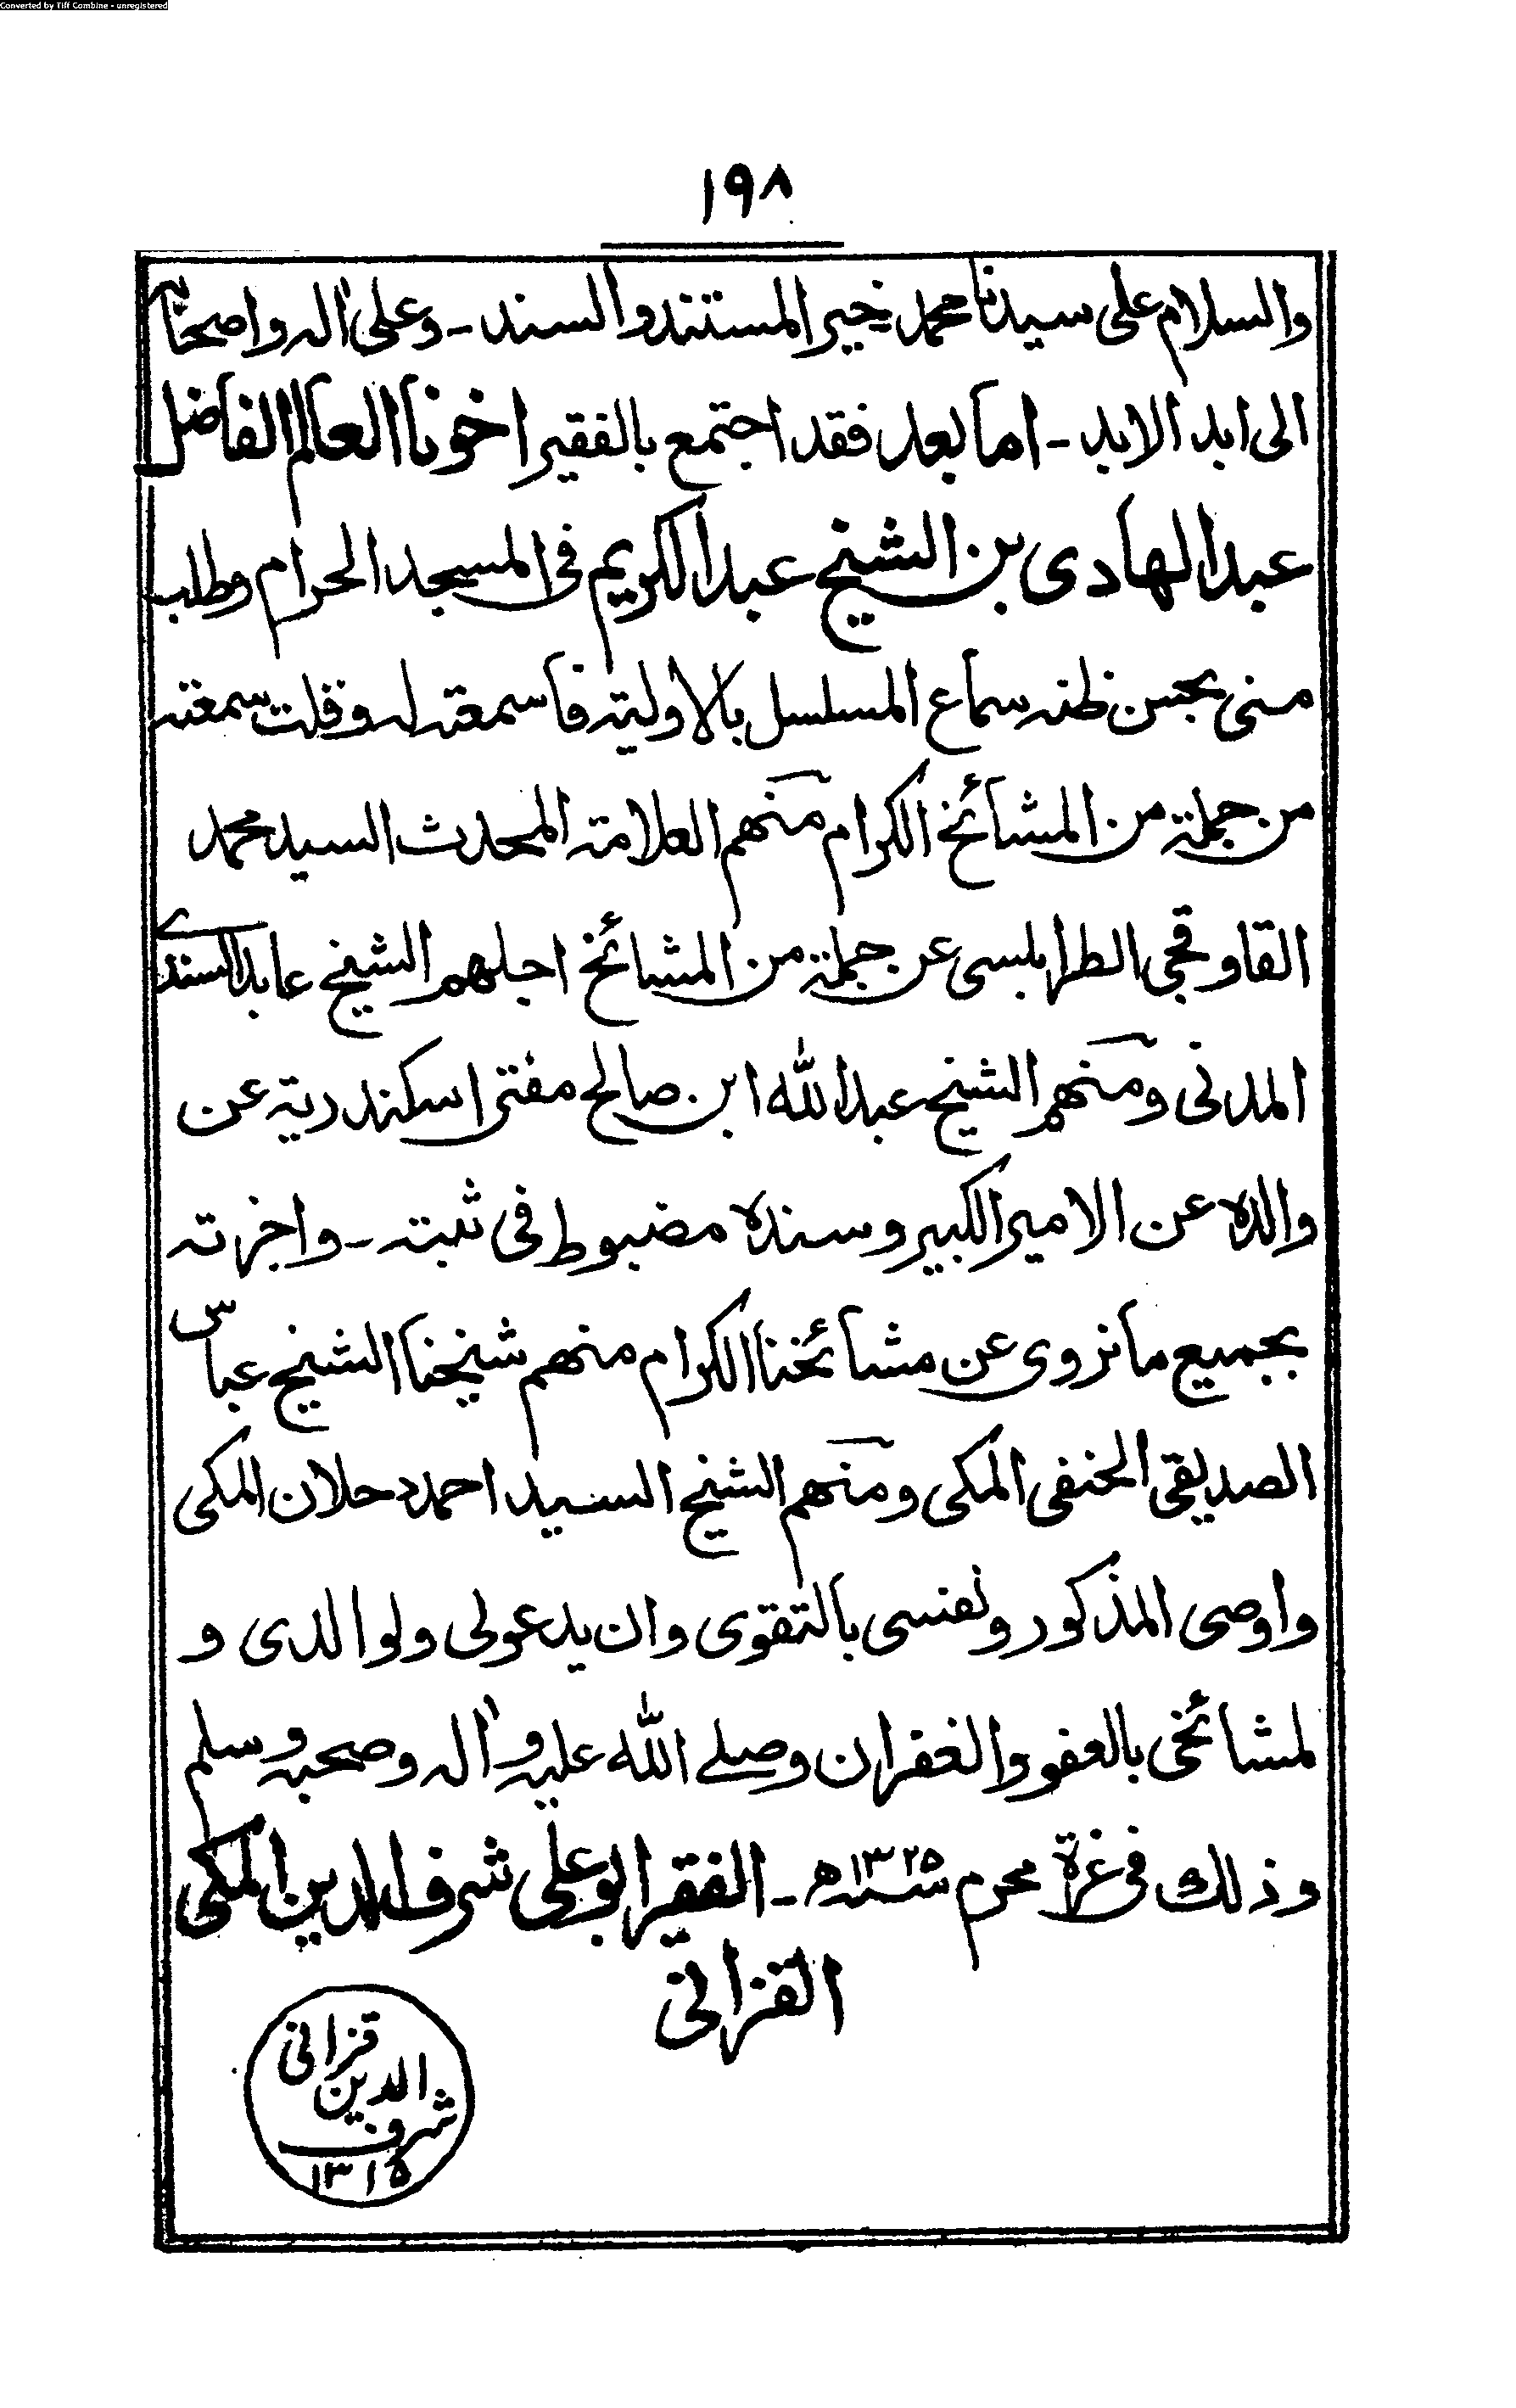 Converted by Tiff Combine - unregistered
١٩٨
والسلام على سيدنا محمد خير المستند والسند - وعلى اله واصحابه
الى ابد الابد - اما بعد فقد اجتمع بالفقير اخونا العالم الفاضل
عبد الهادى بن الشيخ عبد الكريم فى المسجد الحرام وطلب
منى بحسن ظنه سماع المسلسل بالاولية فاسمعته له وقلت سمعته
من جملة من المشائخ الكرام منهم العلامة المحدث السيد محمد
القاوقجى الطرابلسى عن جملة من المشائخ اجلهم الشيخ عابد السندے
المدنى ومنهم الشيخ عبد الله ابن صالح مفتى اسكندرية عن
والده عن الامير الكبير وسنده مضبوط فى ثبته - واجزته
بجميع ما نروى عن مشائخنا الكرام منهم شيخنا الشيخ عباس
الصديقى الحنفى المكى ومنهم الشيخ السيد احمد دحلان المكى
واوصى المذكور ونفسى بالتقوى وان يدعو لى ولوالدى و
لمشائخى بالعفو والغفران وصلے الله عليه و اله وصحبه وسلم
وذلك فى غرة محرم سنه ١٣٢٥ھ - الفقير ابو على شرف الدين المكى
القزانى
قزانى
الدين
شرف
١٣١٥